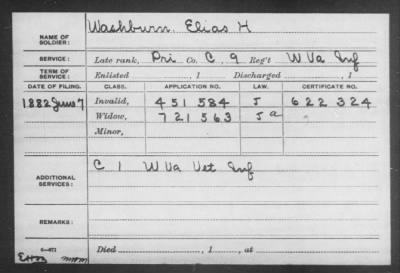 NAME OF SOLDIER: Washburn, Elias H
SERVICE: Late rank, Pri Co. C, 9 Reg't W Va Inf
TERM OF SERVICE: Enlisted , 1 Discharged , 1
DATE OF FILING. CLASS. APPLICATION NO. LAW. CERTIFICATE NO.
1882 June 7 Invalid, 451584 J 622324
Widow, 721563 J a
Minor,
ADDITIONAL SERVICES: C 1 W Va Vet Inf
REMARKS:
Died , 1 , at